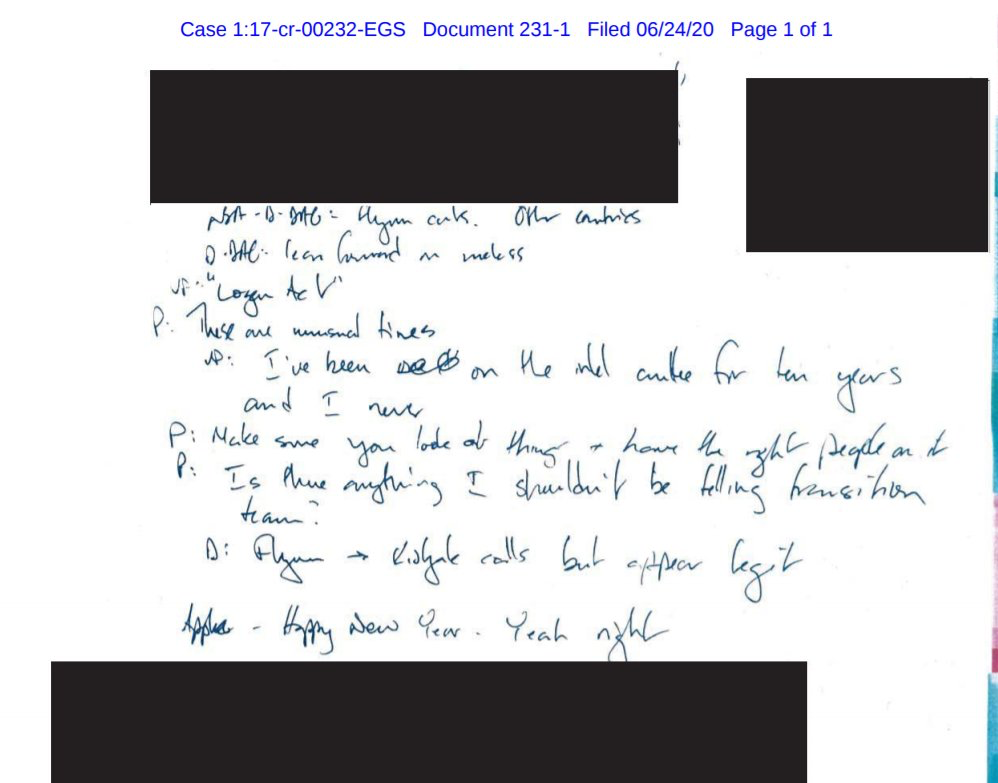 Case 1:17-cr-00232-EGS Document 231-1 Filed 06/24/20 Page 1 of 1
NSA-D-DAG: Flynn cuts. Other countries
D-DAG: lean forward on unclass
VP: "Logan Act"
P: These are unusual times
VP: I've been on the intel cmttee for ten years
and I never
P: Make sure you look at things + have the right people on it
P: Is there anything I shouldn't be telling transition
team?
D: Flynn → Kislyak calls but appear legit
- Happy New Year. Yeah right